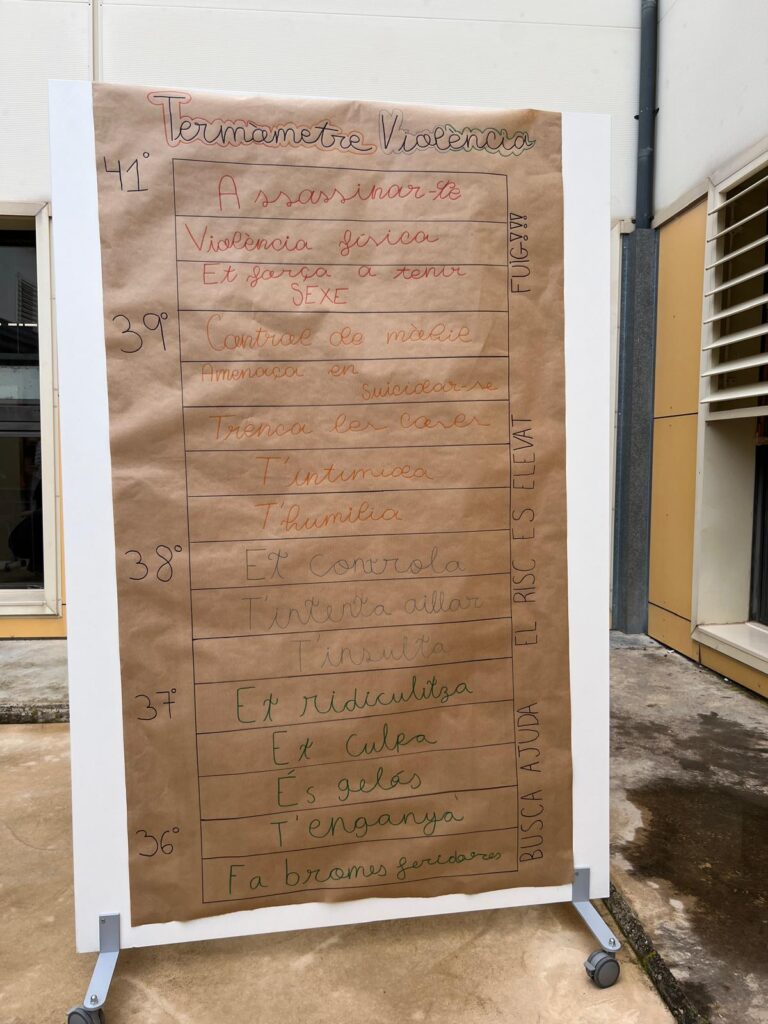 Termòmetre Violència
41°
Assassinar-te
Violència física
Et força a tenir
SEXE
39°
Control de mòbil
Amenaça en
suicidar-se
Trenca les coses
T'intimida
T'humilia
38°
Et controla
T'intenta aillar
T'insulta
37°
Et ridiculitza
Et culpa
És gelós
36°
T'enganya
Fa bromes feridores
FUIG!!!
EL RISC ES ELEVAT
BUSCA AJUDA